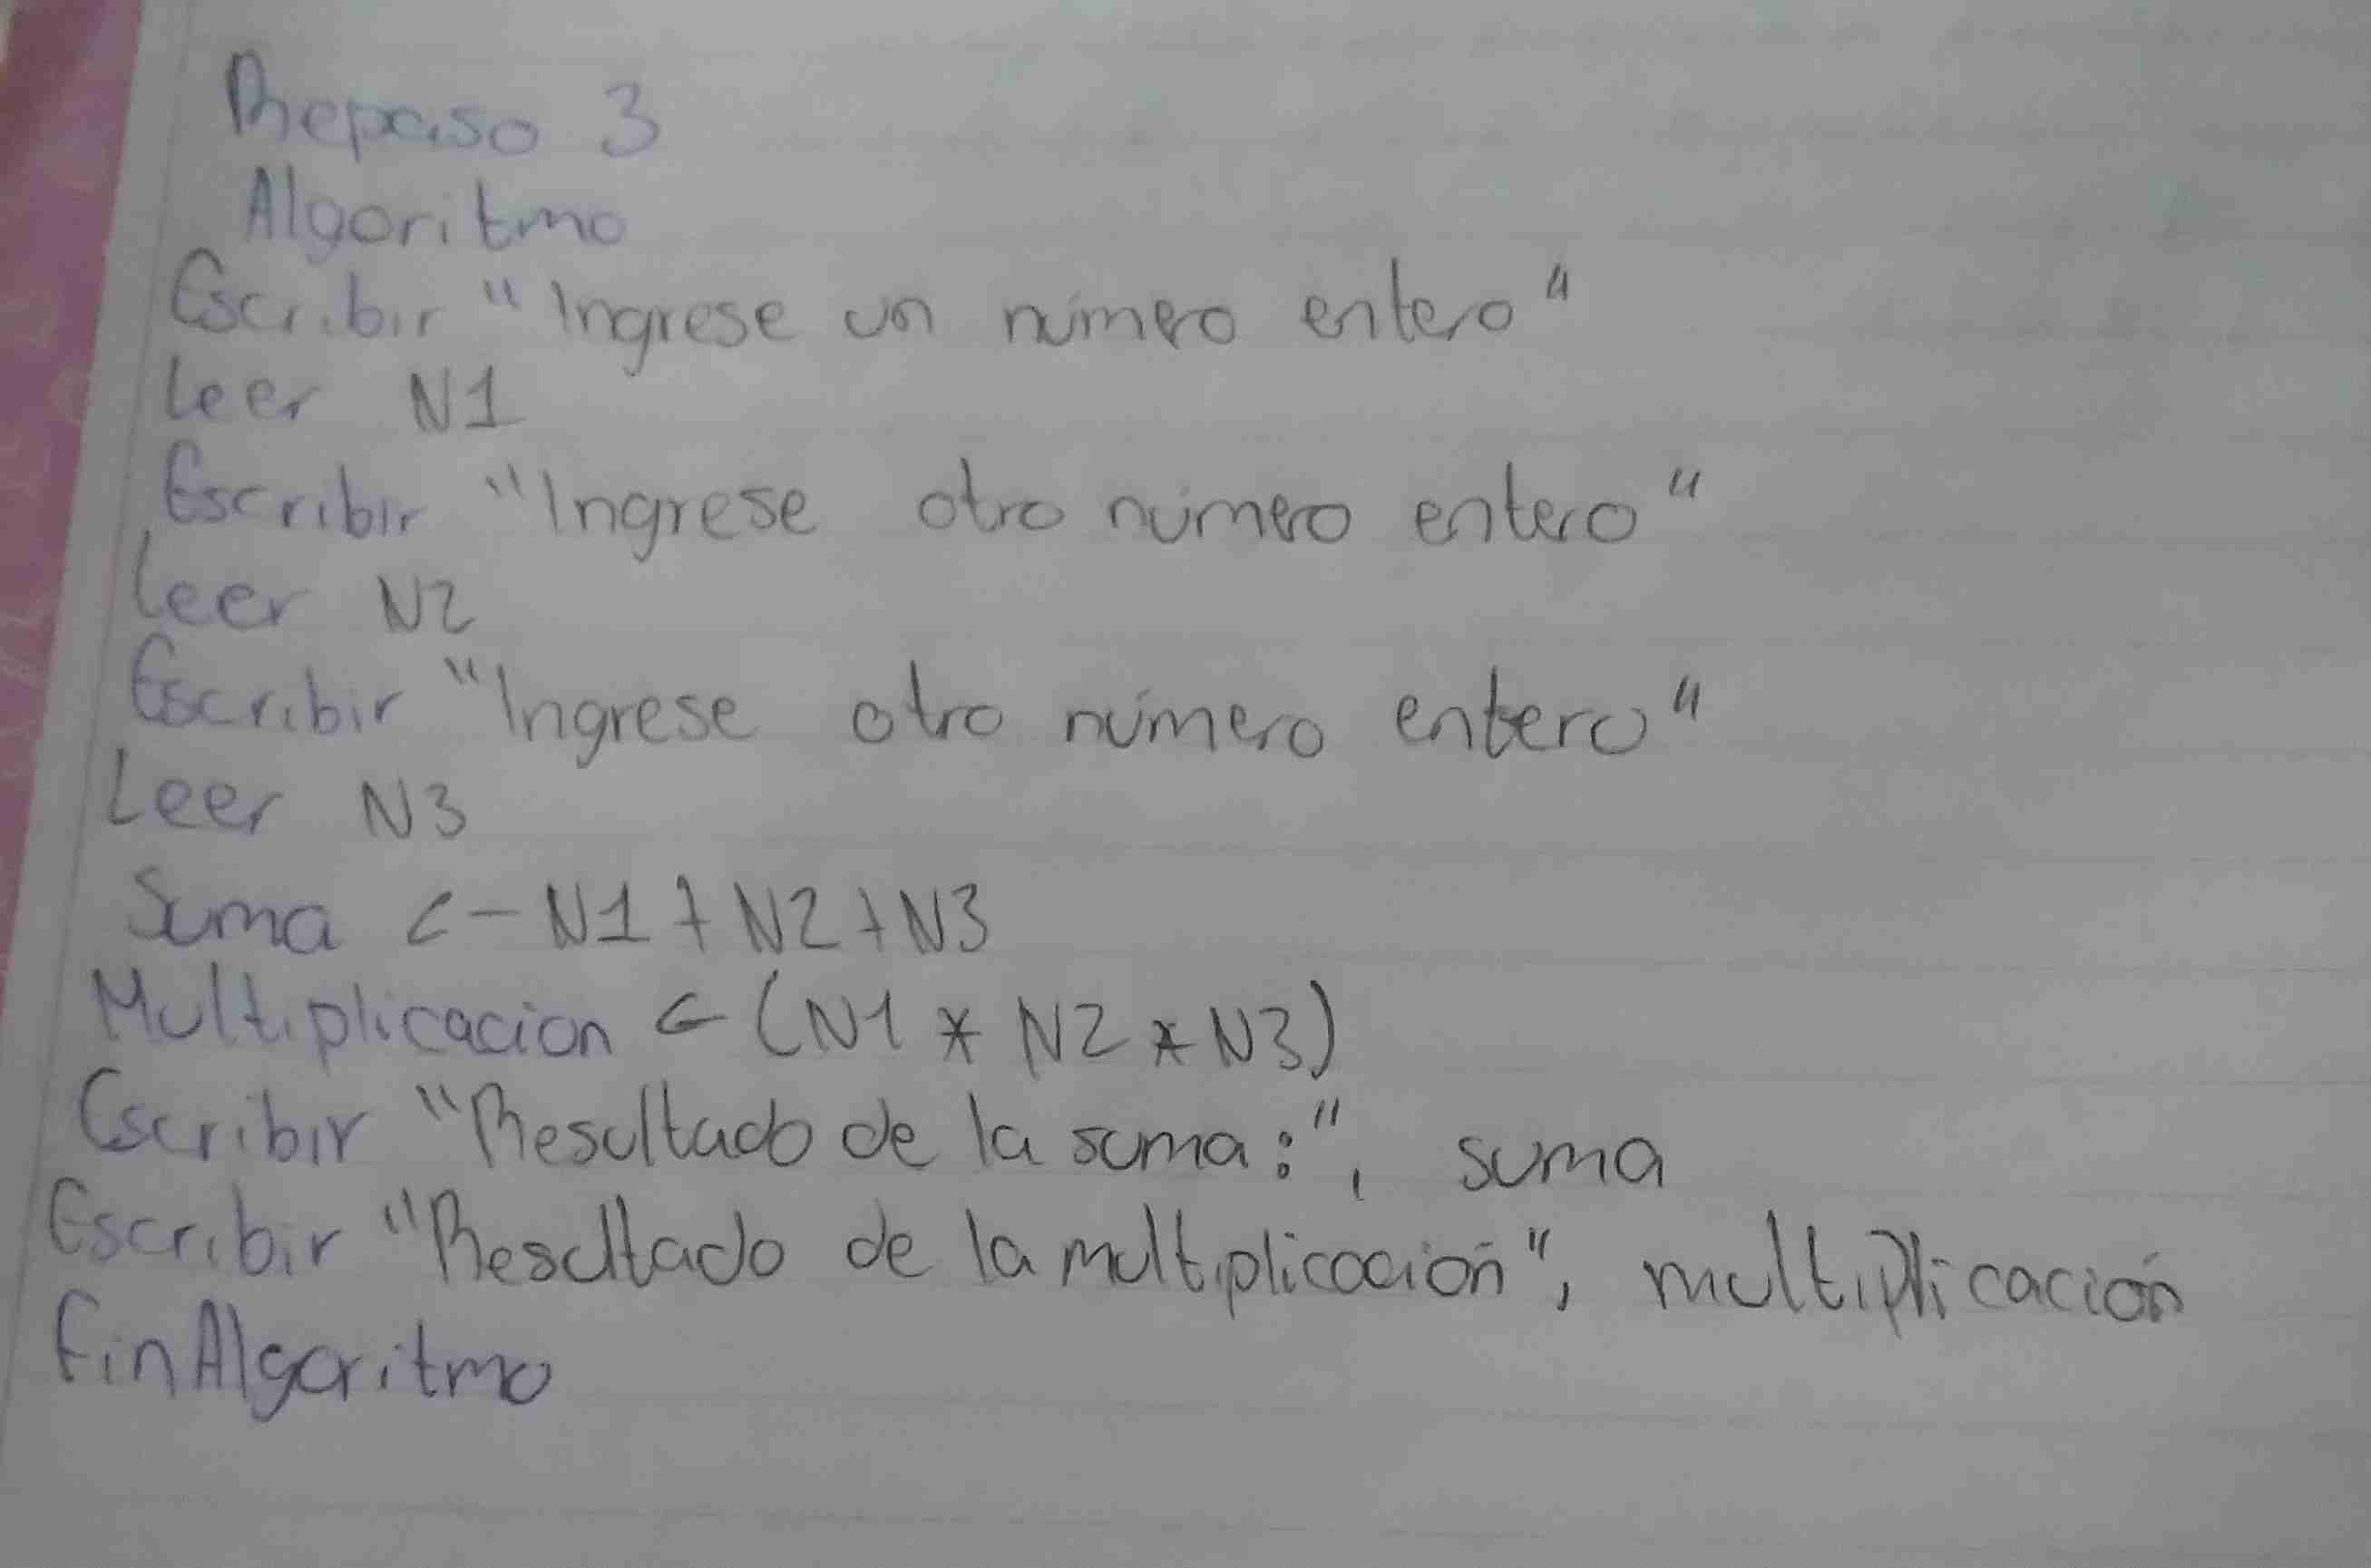 Repaso 3
Algoritmo
Escribir "Ingrese un número entero"
Leer N1
Escribir "Ingrese otro número entero"
Leer N2
Escribir "Ingrese otro número entero"
Leer N3
Suma <- N1 + N2 + N3
Multiplicacion <- (N1 * N2 * N3)
Escribir "Resultado de la suma:", suma
Escribir "Resultado de la multiplicación", multiplicación
FinAlgoritmo